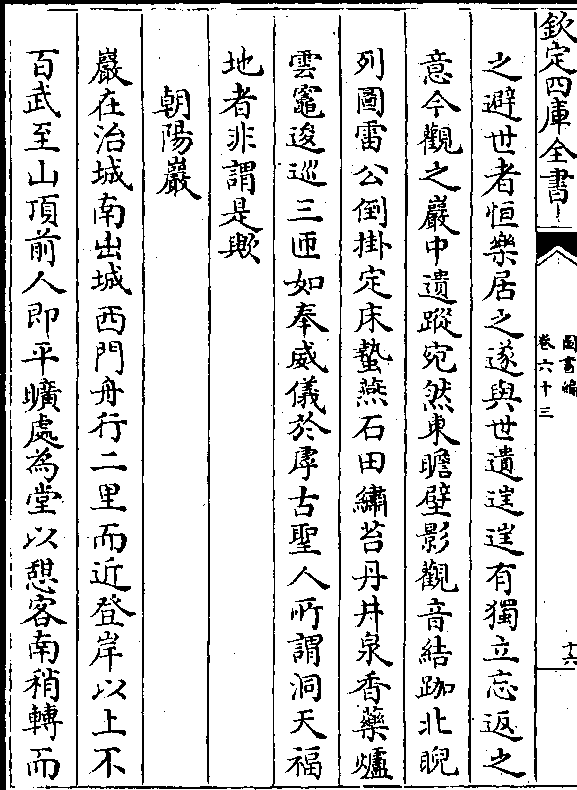 欽定四庫全書
圖書編
卷六十三
十六
之避世者恒樂居之遂與世遺遑遑有獨立忘返之
意今觀之巖中遺蹤宛然東瞻壁影觀音結跏北睨
列圖雷公倒掛定床蟄燕石田繡苔丹井泉香藥爐
雲竈逡巡三匝如奉威儀於厚古聖人所謂洞天福
地者非謂是歟
朝陽巖
巖在治城南出城西門舟行二里而近登岸以上不
百武至山頂前人即平曠處為堂以憇客南稍轉而